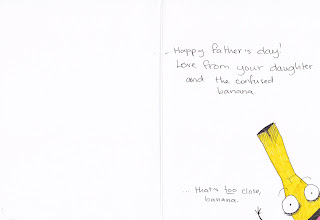 - Happy Father's day!
Love from your daughter
and the confused
banana.
... that's too close,
banana.